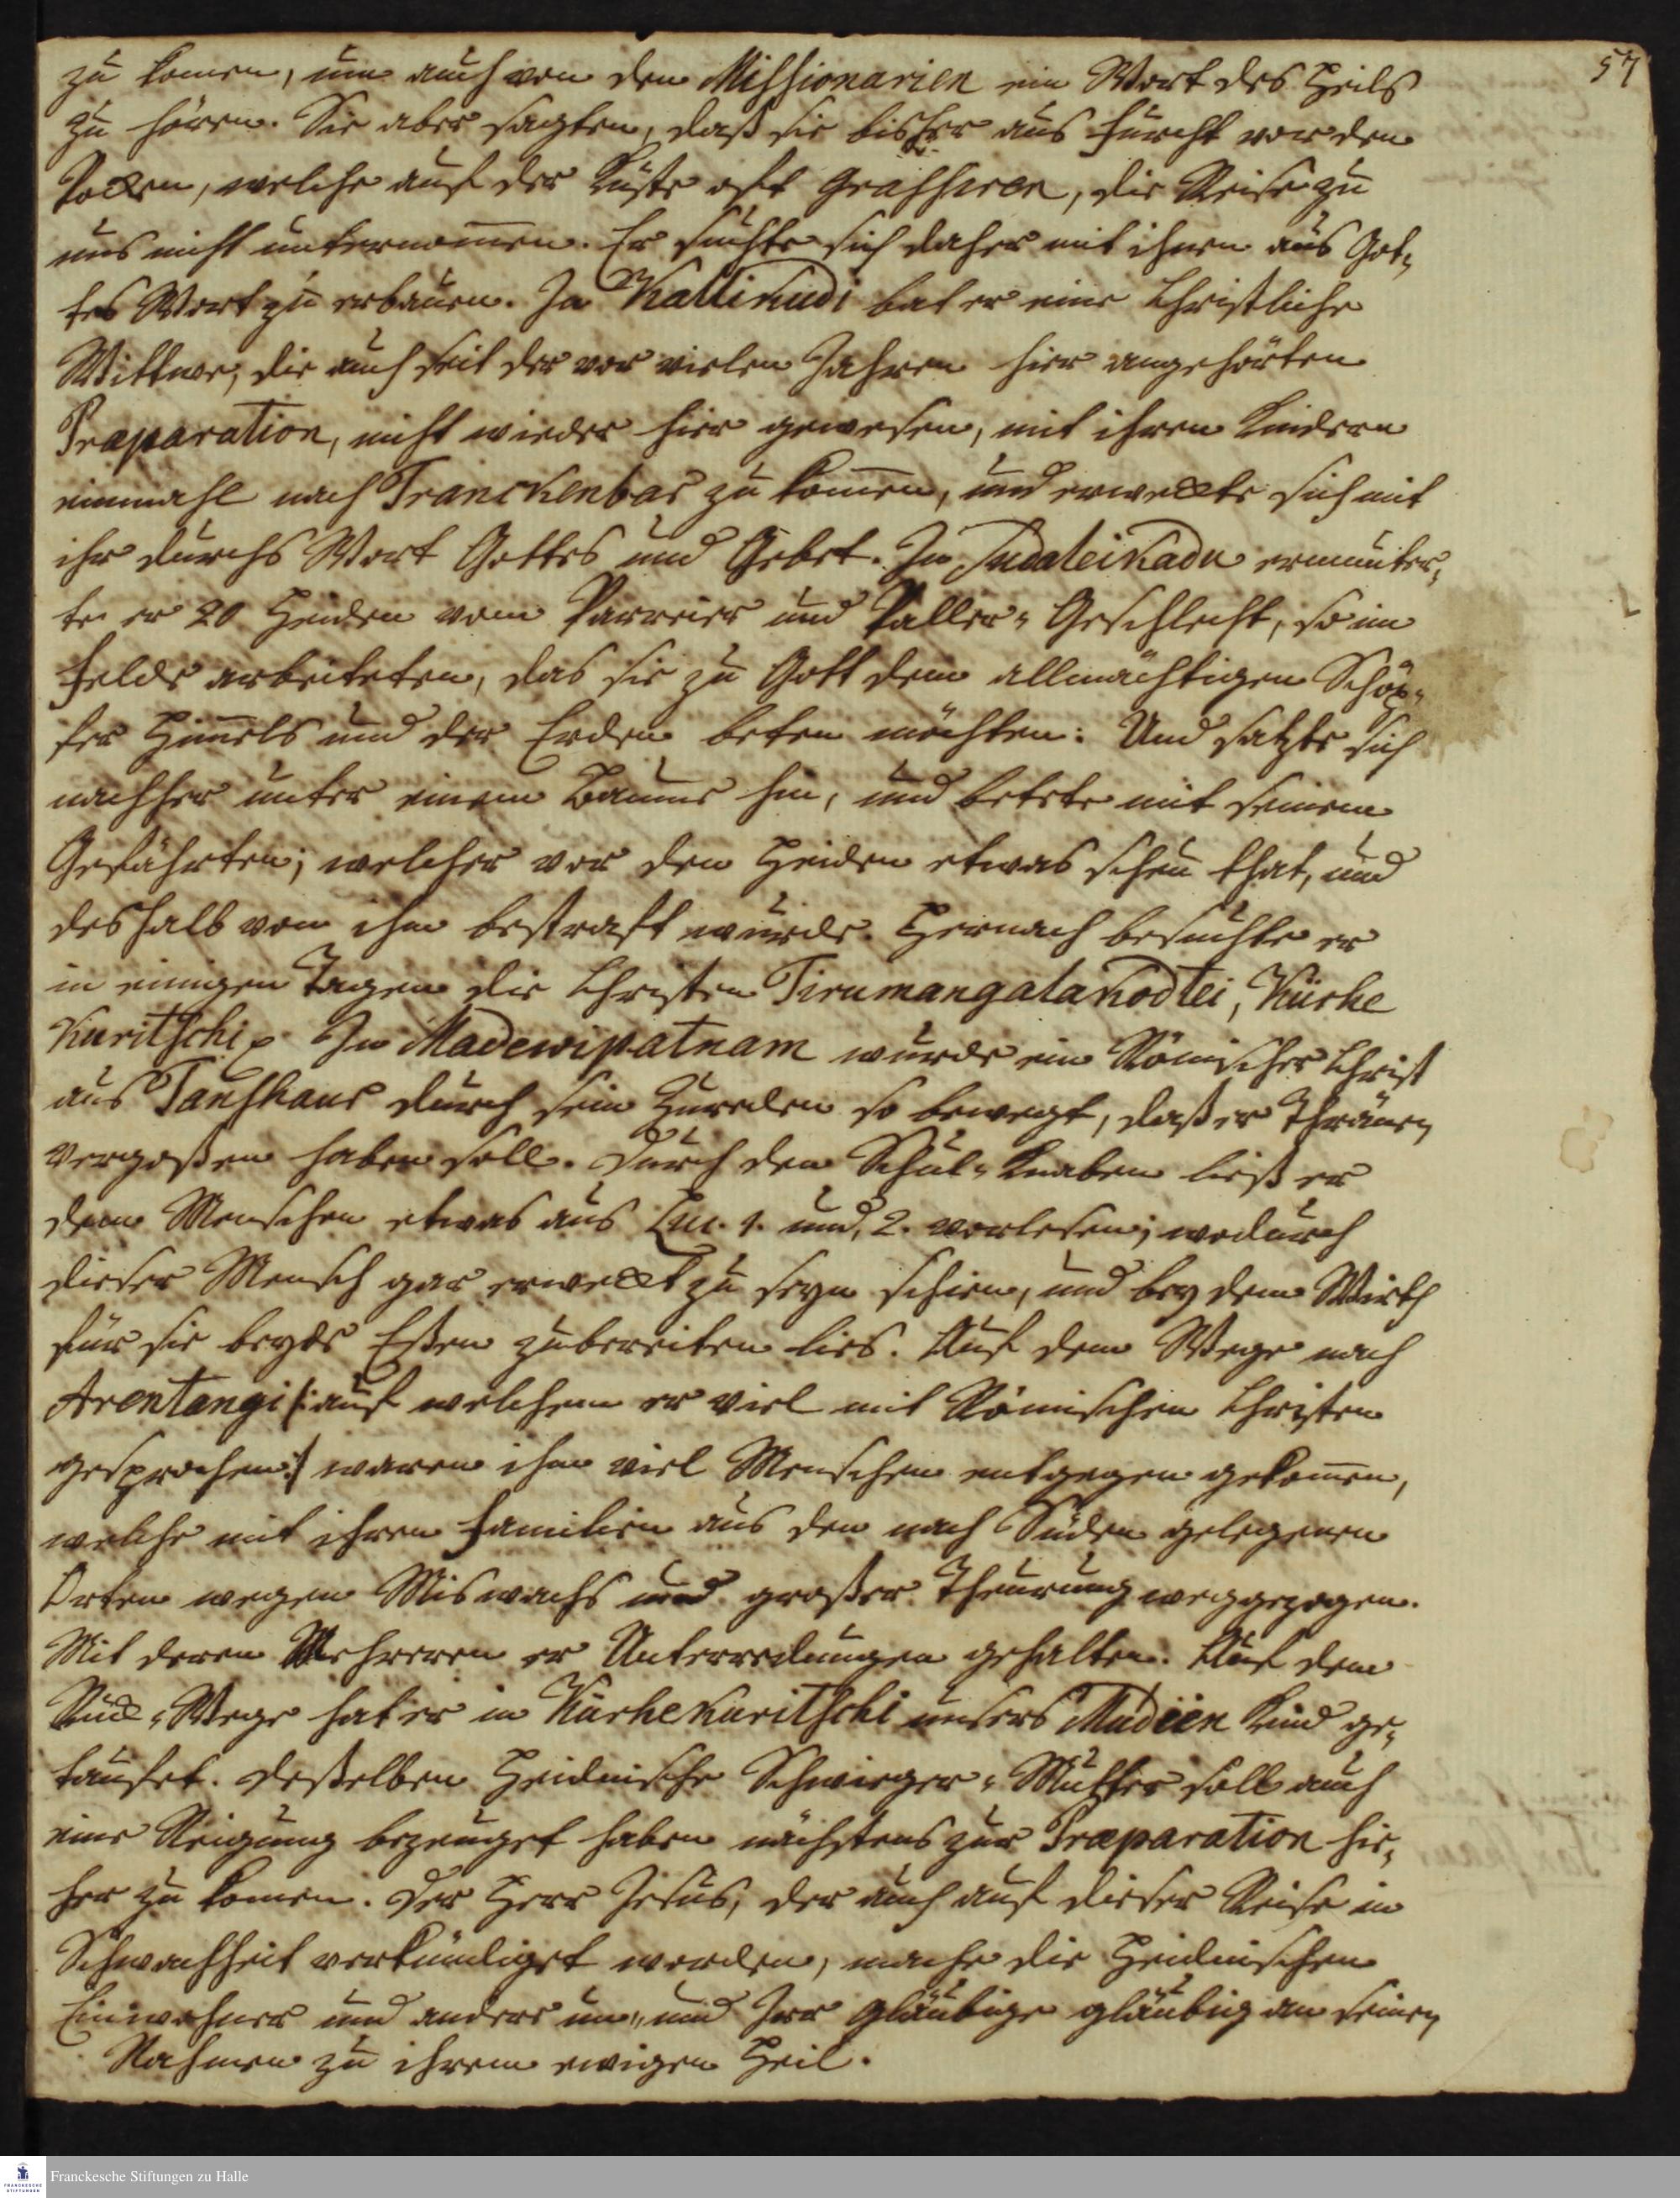 57
zu komen, um auch von den Missionarien ein Wort des Heils
zu hören. Sie aber sagten, daß sie bisher aus Furcht vor den
Pocken, welche auf der Küste oft grassiren, die Reise zu
uns nicht unternom̄en. Er suchte sich daher mit ihnen aus Got-
tes Wort zu erbauen. In Kallikudi bat er eine Christliche
Wittwe, die auch seit der vor vielen Jahren hier angehörten
Praeparation, nicht wieder hier gewesen, mit ihren Kindern
einmahl nach Tranckenbar zu kom̄en, und erweckte sich mit
ihr durchs Wort Gottes und Gebet. In Sudaleikadu ermunter-
te er 20 Heiden vom Parreier und Paller-Geschlecht, so im
Felde arbeiteten, das sie zu Gott dem allmächtigen Schöp-
fer Him̄els und der Erden beten möchten: Und satzte sich
nachher unter einem Baume hin, und betete mit seinem
Gefährten; welcher vor den Heiden etwas scheu that, und
deshalb von ihm bestraft wurde. Hernach besuchte er
in einigen Tagen die Christen Tirumangalakodtei, Kürke
Kuritschi In Madewipatnam wurde ein Römischer Christ
aus Tanschaur durch sein Zureden so bewegt, daß er Thränen
vergoßen haben soll. Durch den Schul-Knaben ließ er
dem Menschen etwas aus Luc. 1. und, 2. vorlesen; wodurch
dieser Mensch gar erweckt zu seyn schien, und bey dem Wirth
für sie beyde Eßen zubereiten lies. Auf dem Wege nach
Arentangi /: auf welchem er viel mit Römischen Christen
gesprochen :/ waren ihm viel Menschen entgegen gekom̄en,
welche mit ihren Familien aus den nach Süden gelegenen
Orten wegen Miswachs und großer Theurung weggezogen.
Mit deren Mehreren er Unterredungen gehalten. Auf dem
Rück-Wege hat er in Kürkekuritschi unsers Mudiën Kind ge-
taufet. Deßelben Heidnische Schwieger-Mutter soll auch
eine Neigung bezeuget haben nächstens zur Praeparation hie-
her zu komen. Der Herr Jesus, der auch auf dieser Reise in
Schwachheit verkündiget worden, mache die Heidnischen
Einwohner und andere un- und Irr gläubige gläubig an seinen
Nahmen zu ihrem ewigen Heil.
Franckesche Stiftungen zu Halle
FRANCKESCHE
STIFTUNGEN